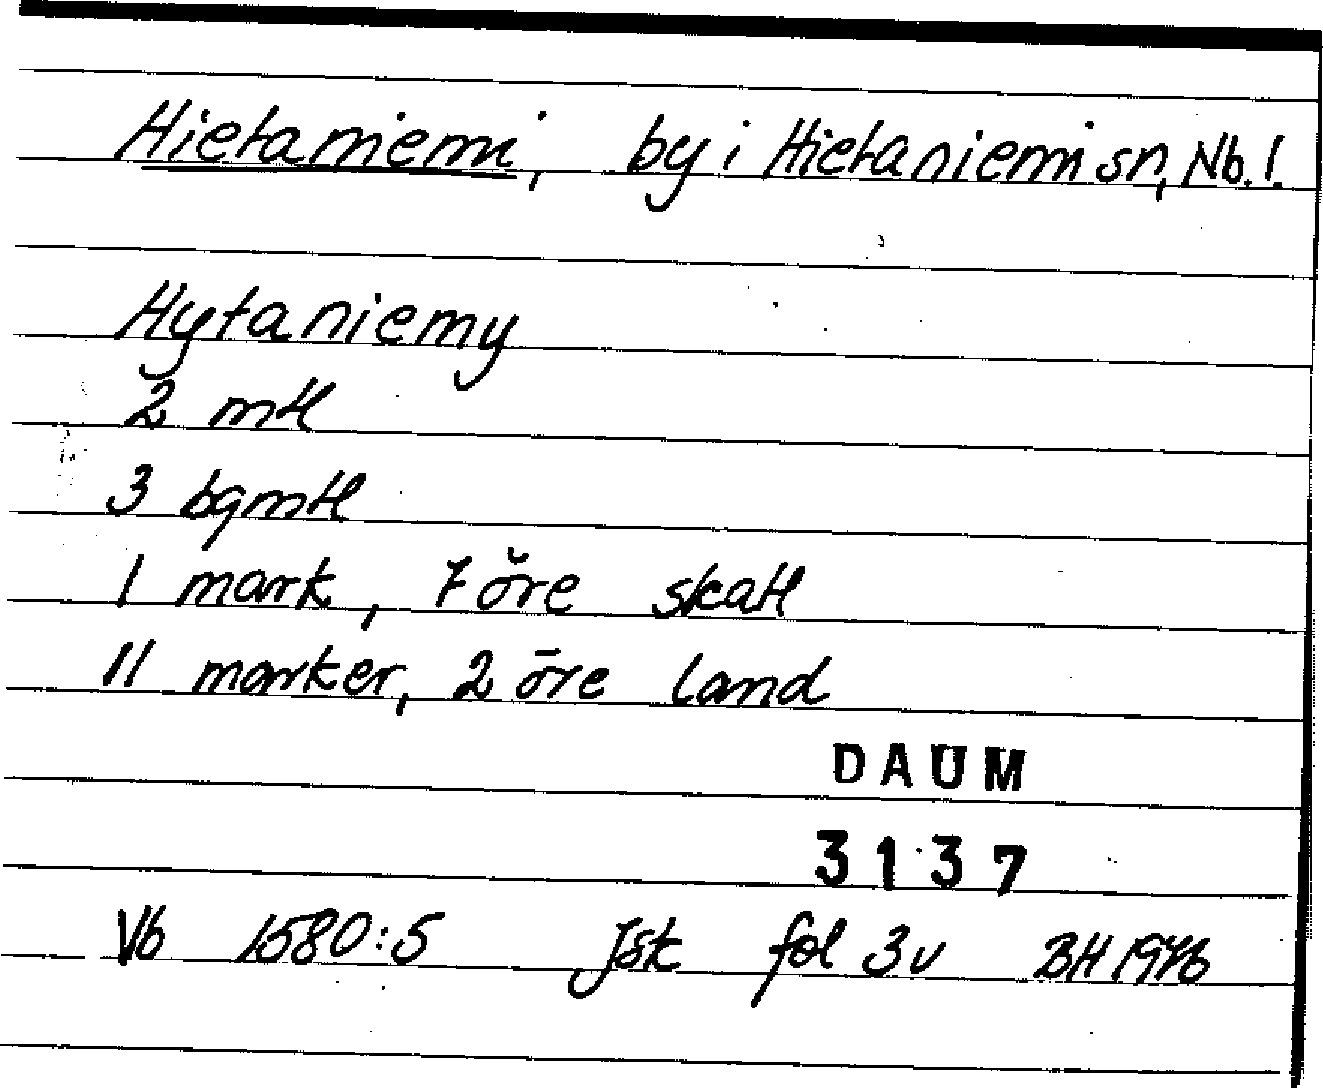 Hietaniemi, by i Hietaniemi sn, Nb. l.
Hytaniemy
2 mtl
3 bgmtl
1 mark, 7 öre skatt
11 marker, 2 öre land
DAUM
3137
Vb 1580:5 Jsk fol 3v BH 1976